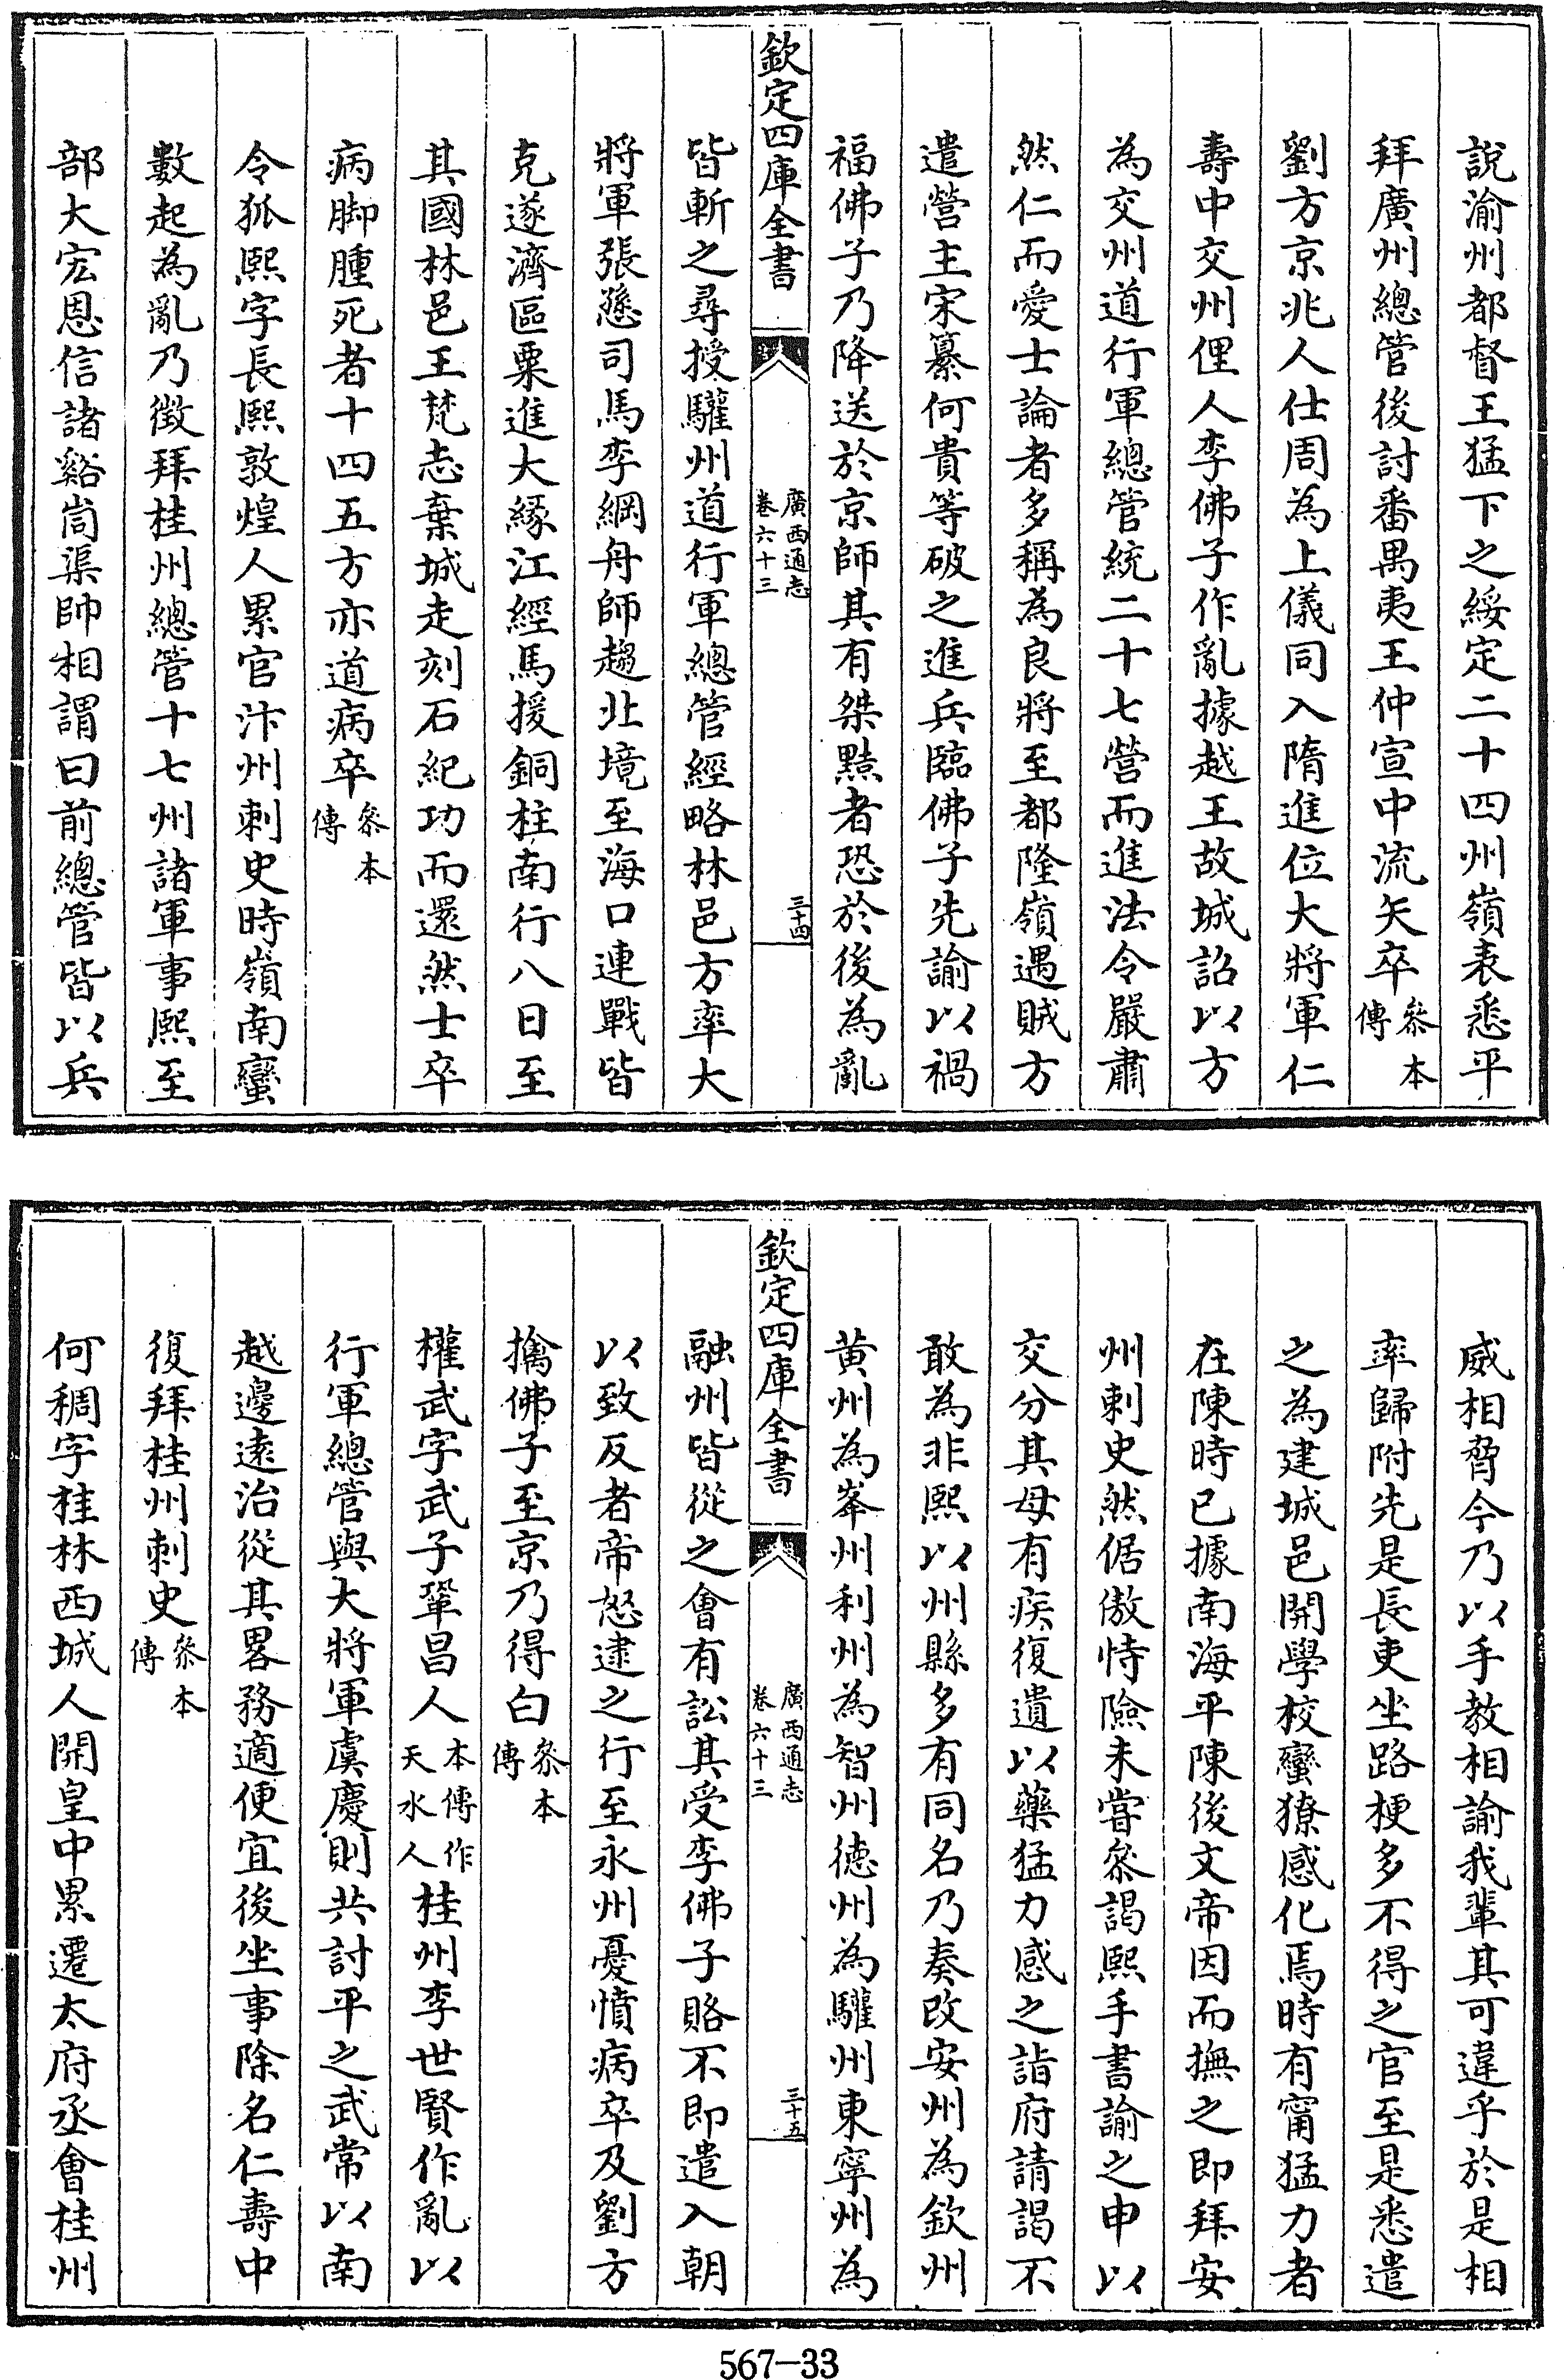 說渝州都督王猛下之綏定二十四州嶺表悉平
拜廣州總管後討番禺夷王仲宣中流矢卒叅本傳
劉方京兆人仕周為上儀同入隋進位大將軍仁
壽中交州俚人李佛子作亂據越王故城詔以方
為交州道行軍總管統二十七營而進法令嚴肅
然仁而愛士論者多稱為良將至都隆嶺遇賊方
遣營主宋纂何貴等破之進兵臨佛子先諭以禍
福佛子乃降送於京師其有桀黠者恐於後為亂
欽定四庫全書 廣西通志卷六十三 三十四
皆斬之尋授驩州道行軍總管經略林邑方率大
將軍張愻司馬李綱舟師趨北境至海口連戰皆
克遂濟區粟進大緣江經馬援銅柱南行八日至
其國林邑王梵志棄城走刻石紀功而還然士卒
病脚腫死者十四五方亦道病卒叅本傳
令狐熙字長熙敦煌人累官汴州刺史時嶺南蠻
數起為亂乃徵拜桂州總管十七州諸軍事熙至
部大宏恩信諸谿峝渠帥相謂曰前總管皆以兵
威相脅今乃以手教相諭我輩其可違乎於是相
率歸附先是長吏坐路梗多不得之官至是悉遣
之為建城邑開學校蠻獠感化焉時有甯猛力者
在陳時已據南海平陳後文帝因而撫之即拜安
州刺史然倨傲恃險未嘗叅謁熙手書諭之申以
交分其母有疾復遺以藥猛力感之詣府請謁不
敢為非熙以州縣多有同名乃奏改安州為欽州
黄州為峯州利州為智州德州為驩州東寧州為
欽定四庫全書 廣西通志卷六十三 三十五
融州皆從之會有訟其受李佛子賂不即遣入朝
以致反者帝怒逮之行至永州憂憤病卒及劉方
擒佛子至京乃得白叅本傳
權武字武子鞏昌人本傳作天水人桂州李世賢作亂以
行軍總管與大將軍虞慶則共討平之武常以南
越邊遠治從其畧務適便宜後坐事除名仁壽中
復拜桂州刺史叅本傳
何稠字桂林西城人開皇中累遷太府丞會桂州
567-33